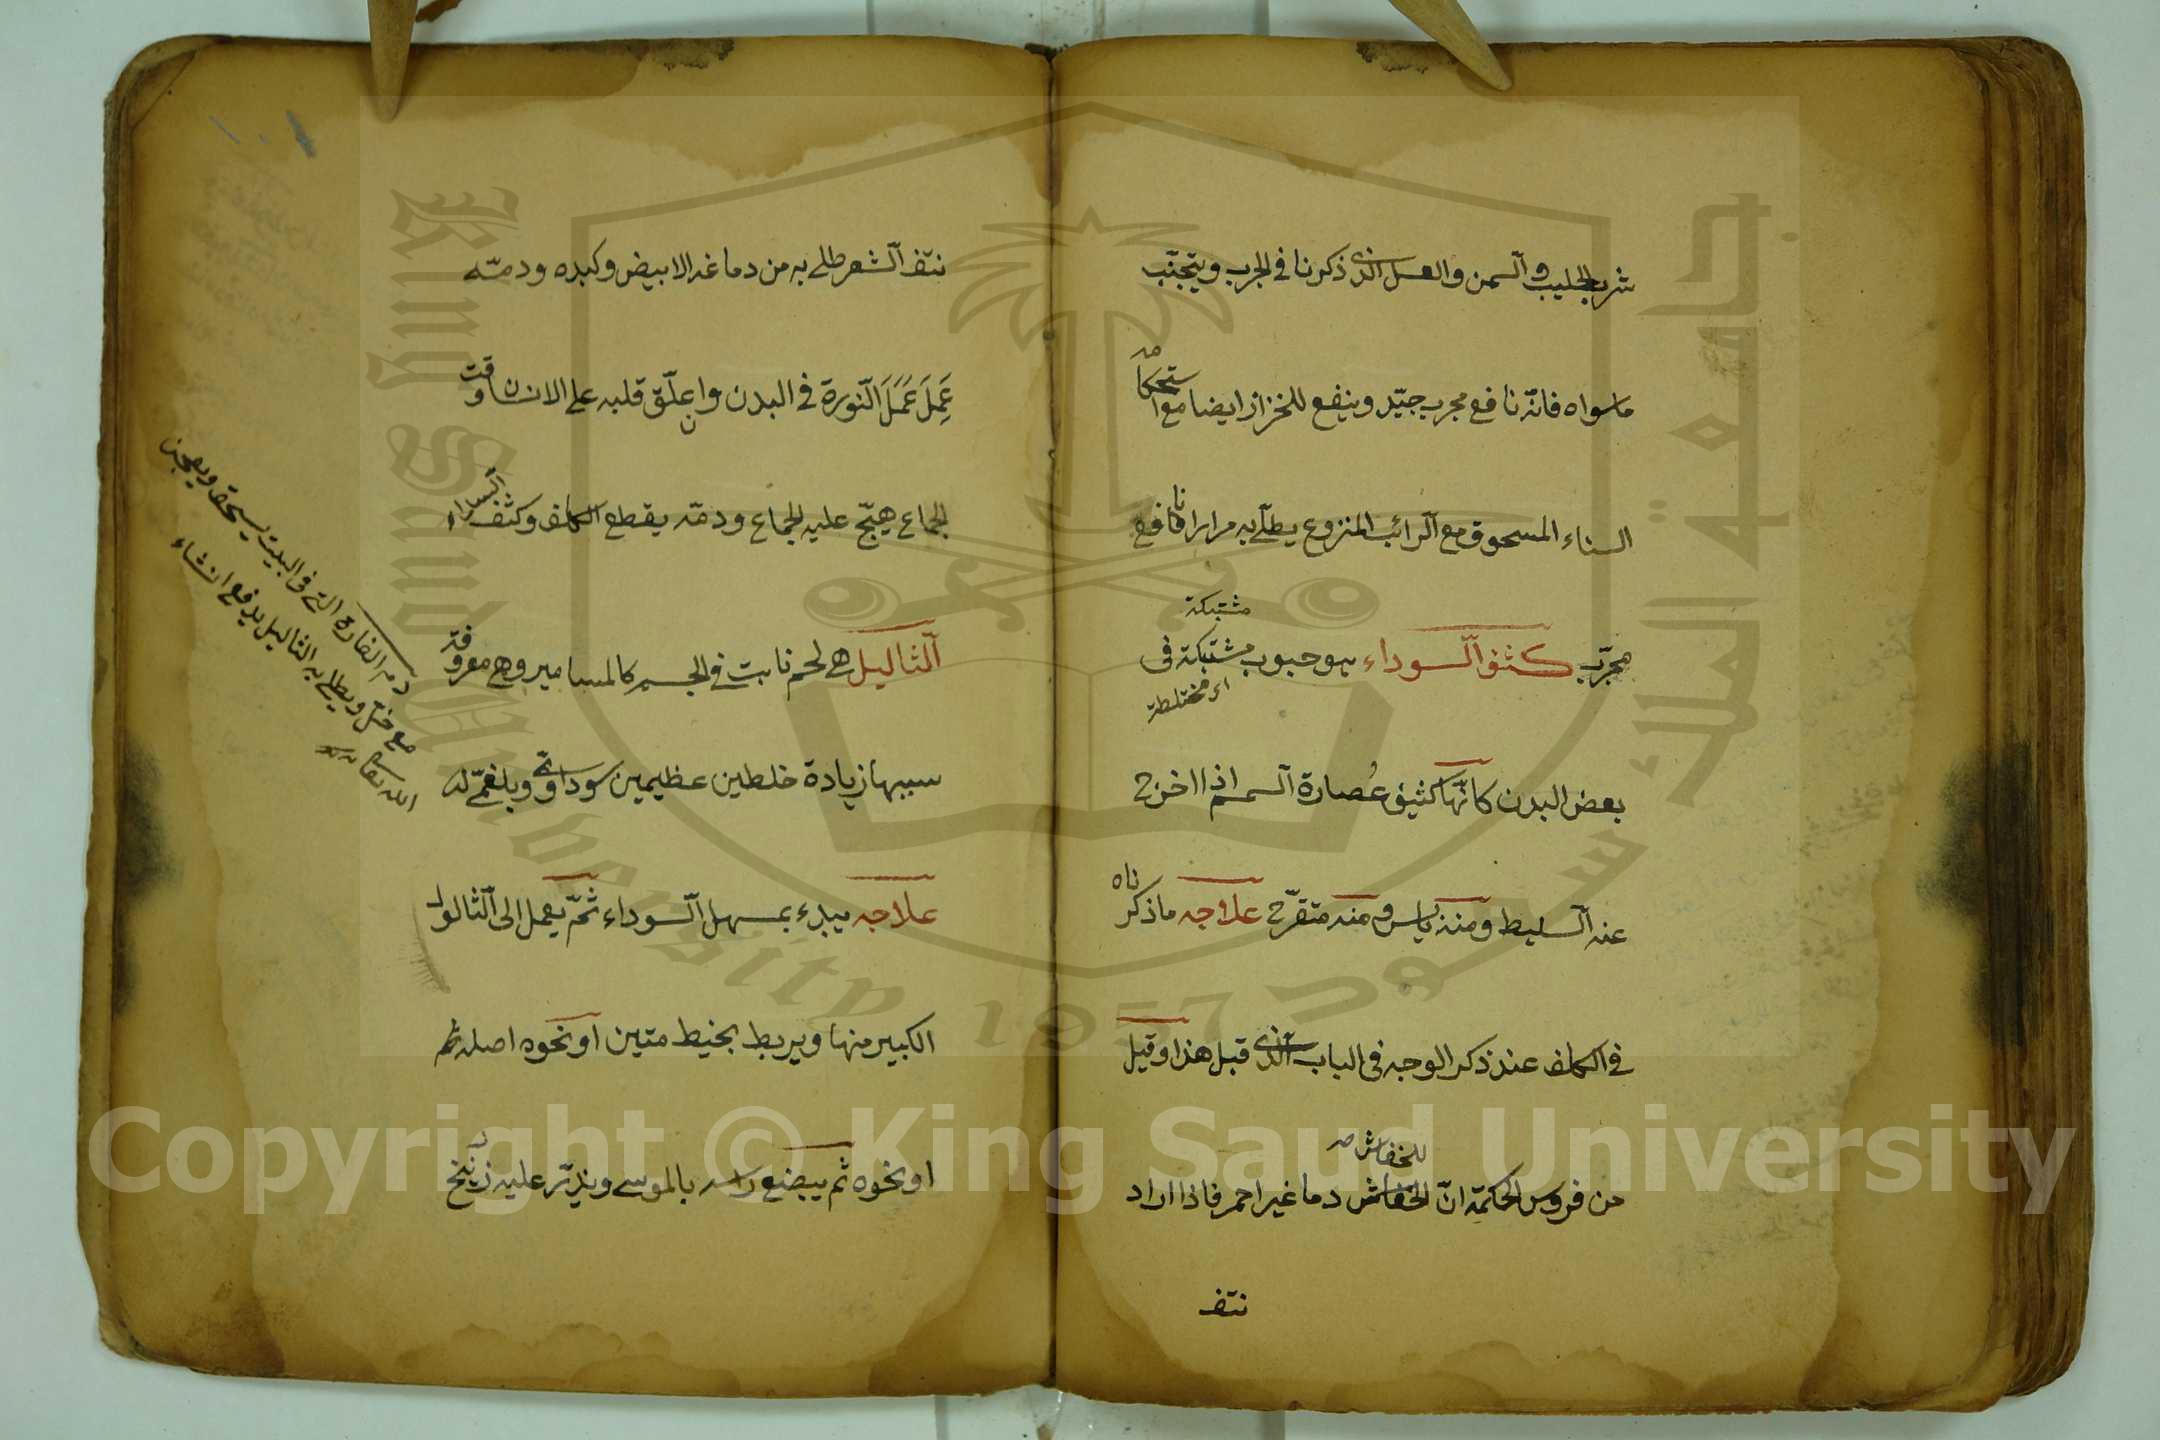 شرب الحليب والسمن والعسل الذي ذكرنا في الجرب ويتجنّب
ماسواه فانّه نافع مجرب جيّد وينفع للخزاز ايضا مع استحكا
السناء المسحوق مع الرائب المنزوع يطلى به مرارا فانافع
مشتبكة
مجرّب كثف السوداء هو حبوب مشتبكة في
اي مختلطة
بعض البدن كانّها كثيف عُصارة السمسم اذا اخرج
عنه السليط ومنه يابس ومنه متقرّح علاجه ماذكرناه
في الكلف عند ذكر الوجه في الباب الذي قبل هذا وقيل
للخفاش صح
من فردوس الحكمة انّ الخفاش دما غير احمر فاذا اراد
نتف
نتف الشعر طلى به من دماغه الابيض وكبده ودمّه
عَمِلَ عَمَلَ النّورة في البدن وان علّق قلبه على الانسان وقت
الجماع هيّج عليه للجماع ودمّه يقطع الكلف وكثف السوداء
الثاليل هي لحم نابت في الجسم كالمسامير وهي معروفة
سببها زيادة خلطين عظيمين سوداوي وبلغمي له
علاجه يبدء بمسهل السوداء ثمّ يعمل الى الثالول
الكبير منها ويربط بخيط متين او نحوه اصله ثم
او نحوه ثم يبضع راسه بالموسى ويذرّ عليه زرنيخ
دم الفارة التي في البيت يسحق ويعجن
مع خل ويطلى به الثاليل يدفع انشاء
الله تعالى
King Saud University
جامعة الملك سعود
1957
Copyright © King Saud University